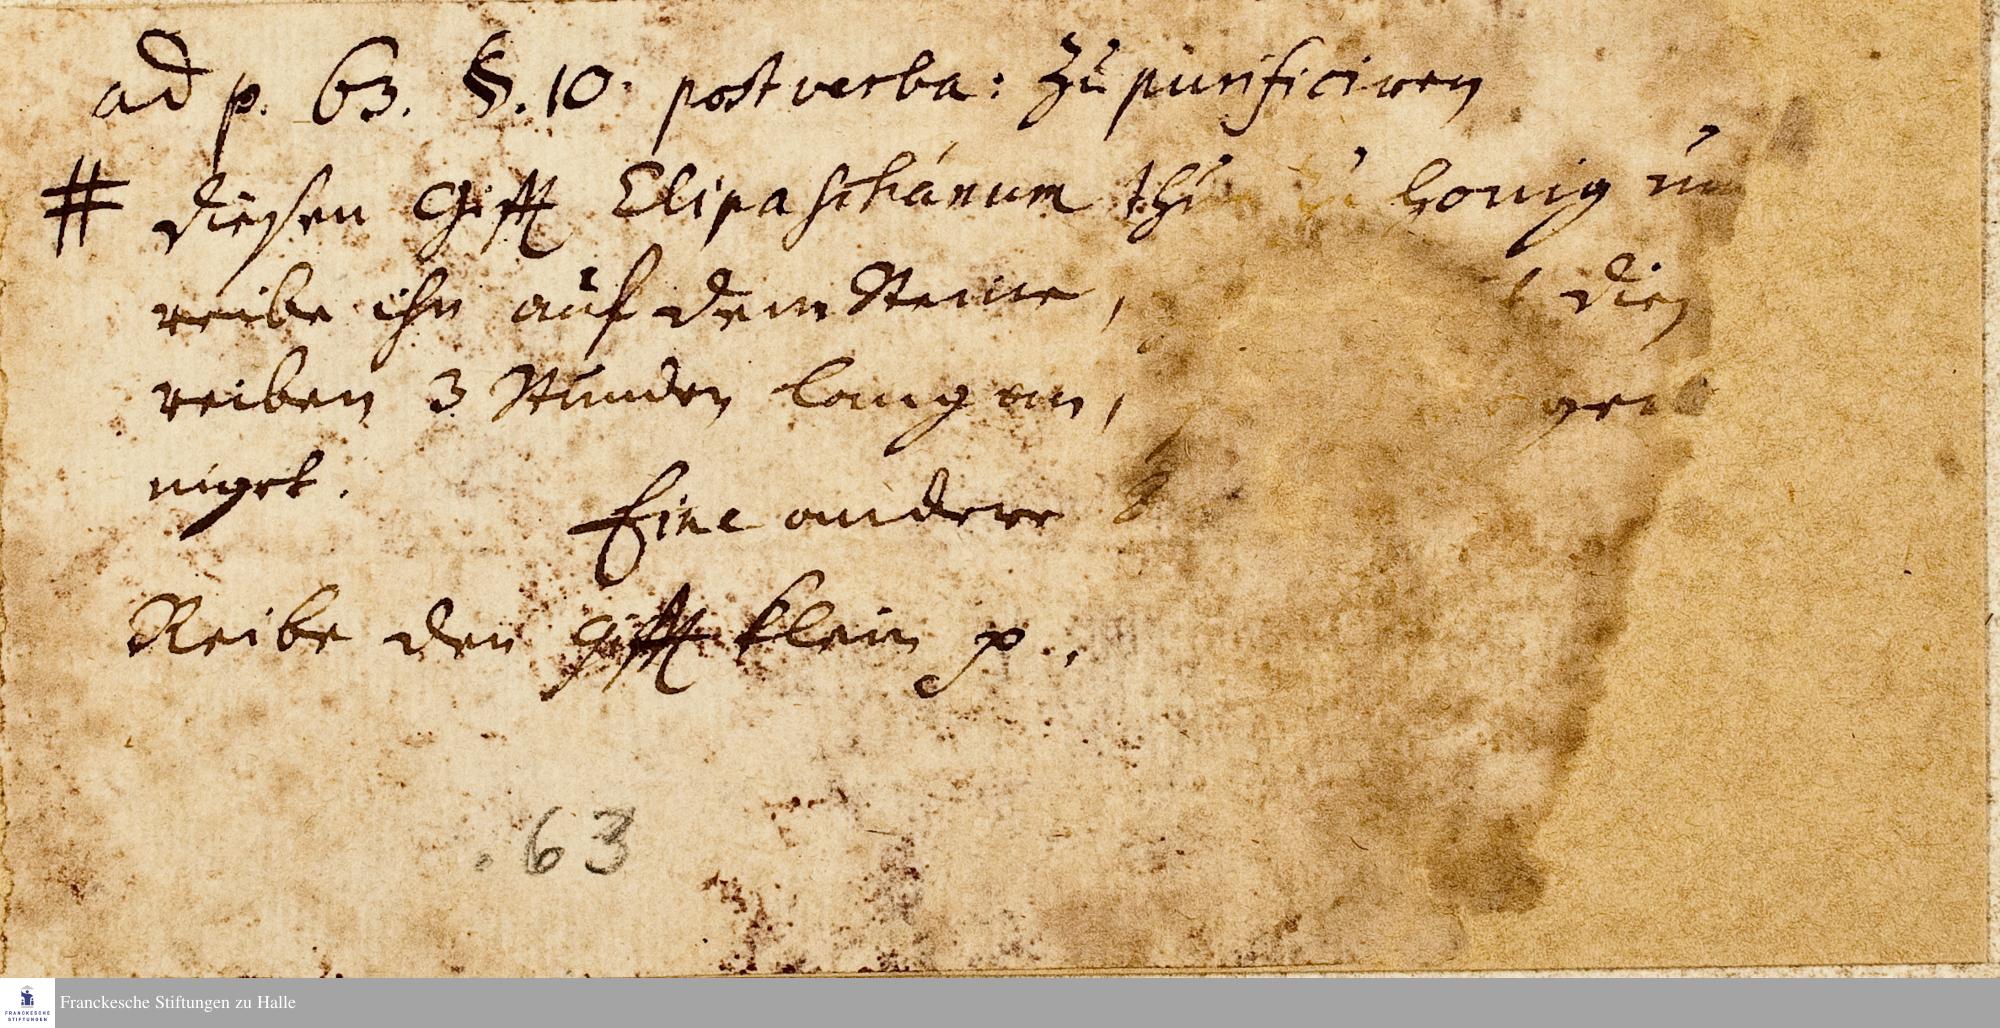 ad p. 63. §. 10. post verba: Zu purificiren
# diesen Gifft Elipaschánum honig
reibe ihn auf dem Steine,
reiben 3 Stunden lang an,
niget.
Eine andere
Reibe den gifft klein p.
. 63
Franckesche Stiftungen zu Halle
FRANCKESCHE
STIFTUNGEN